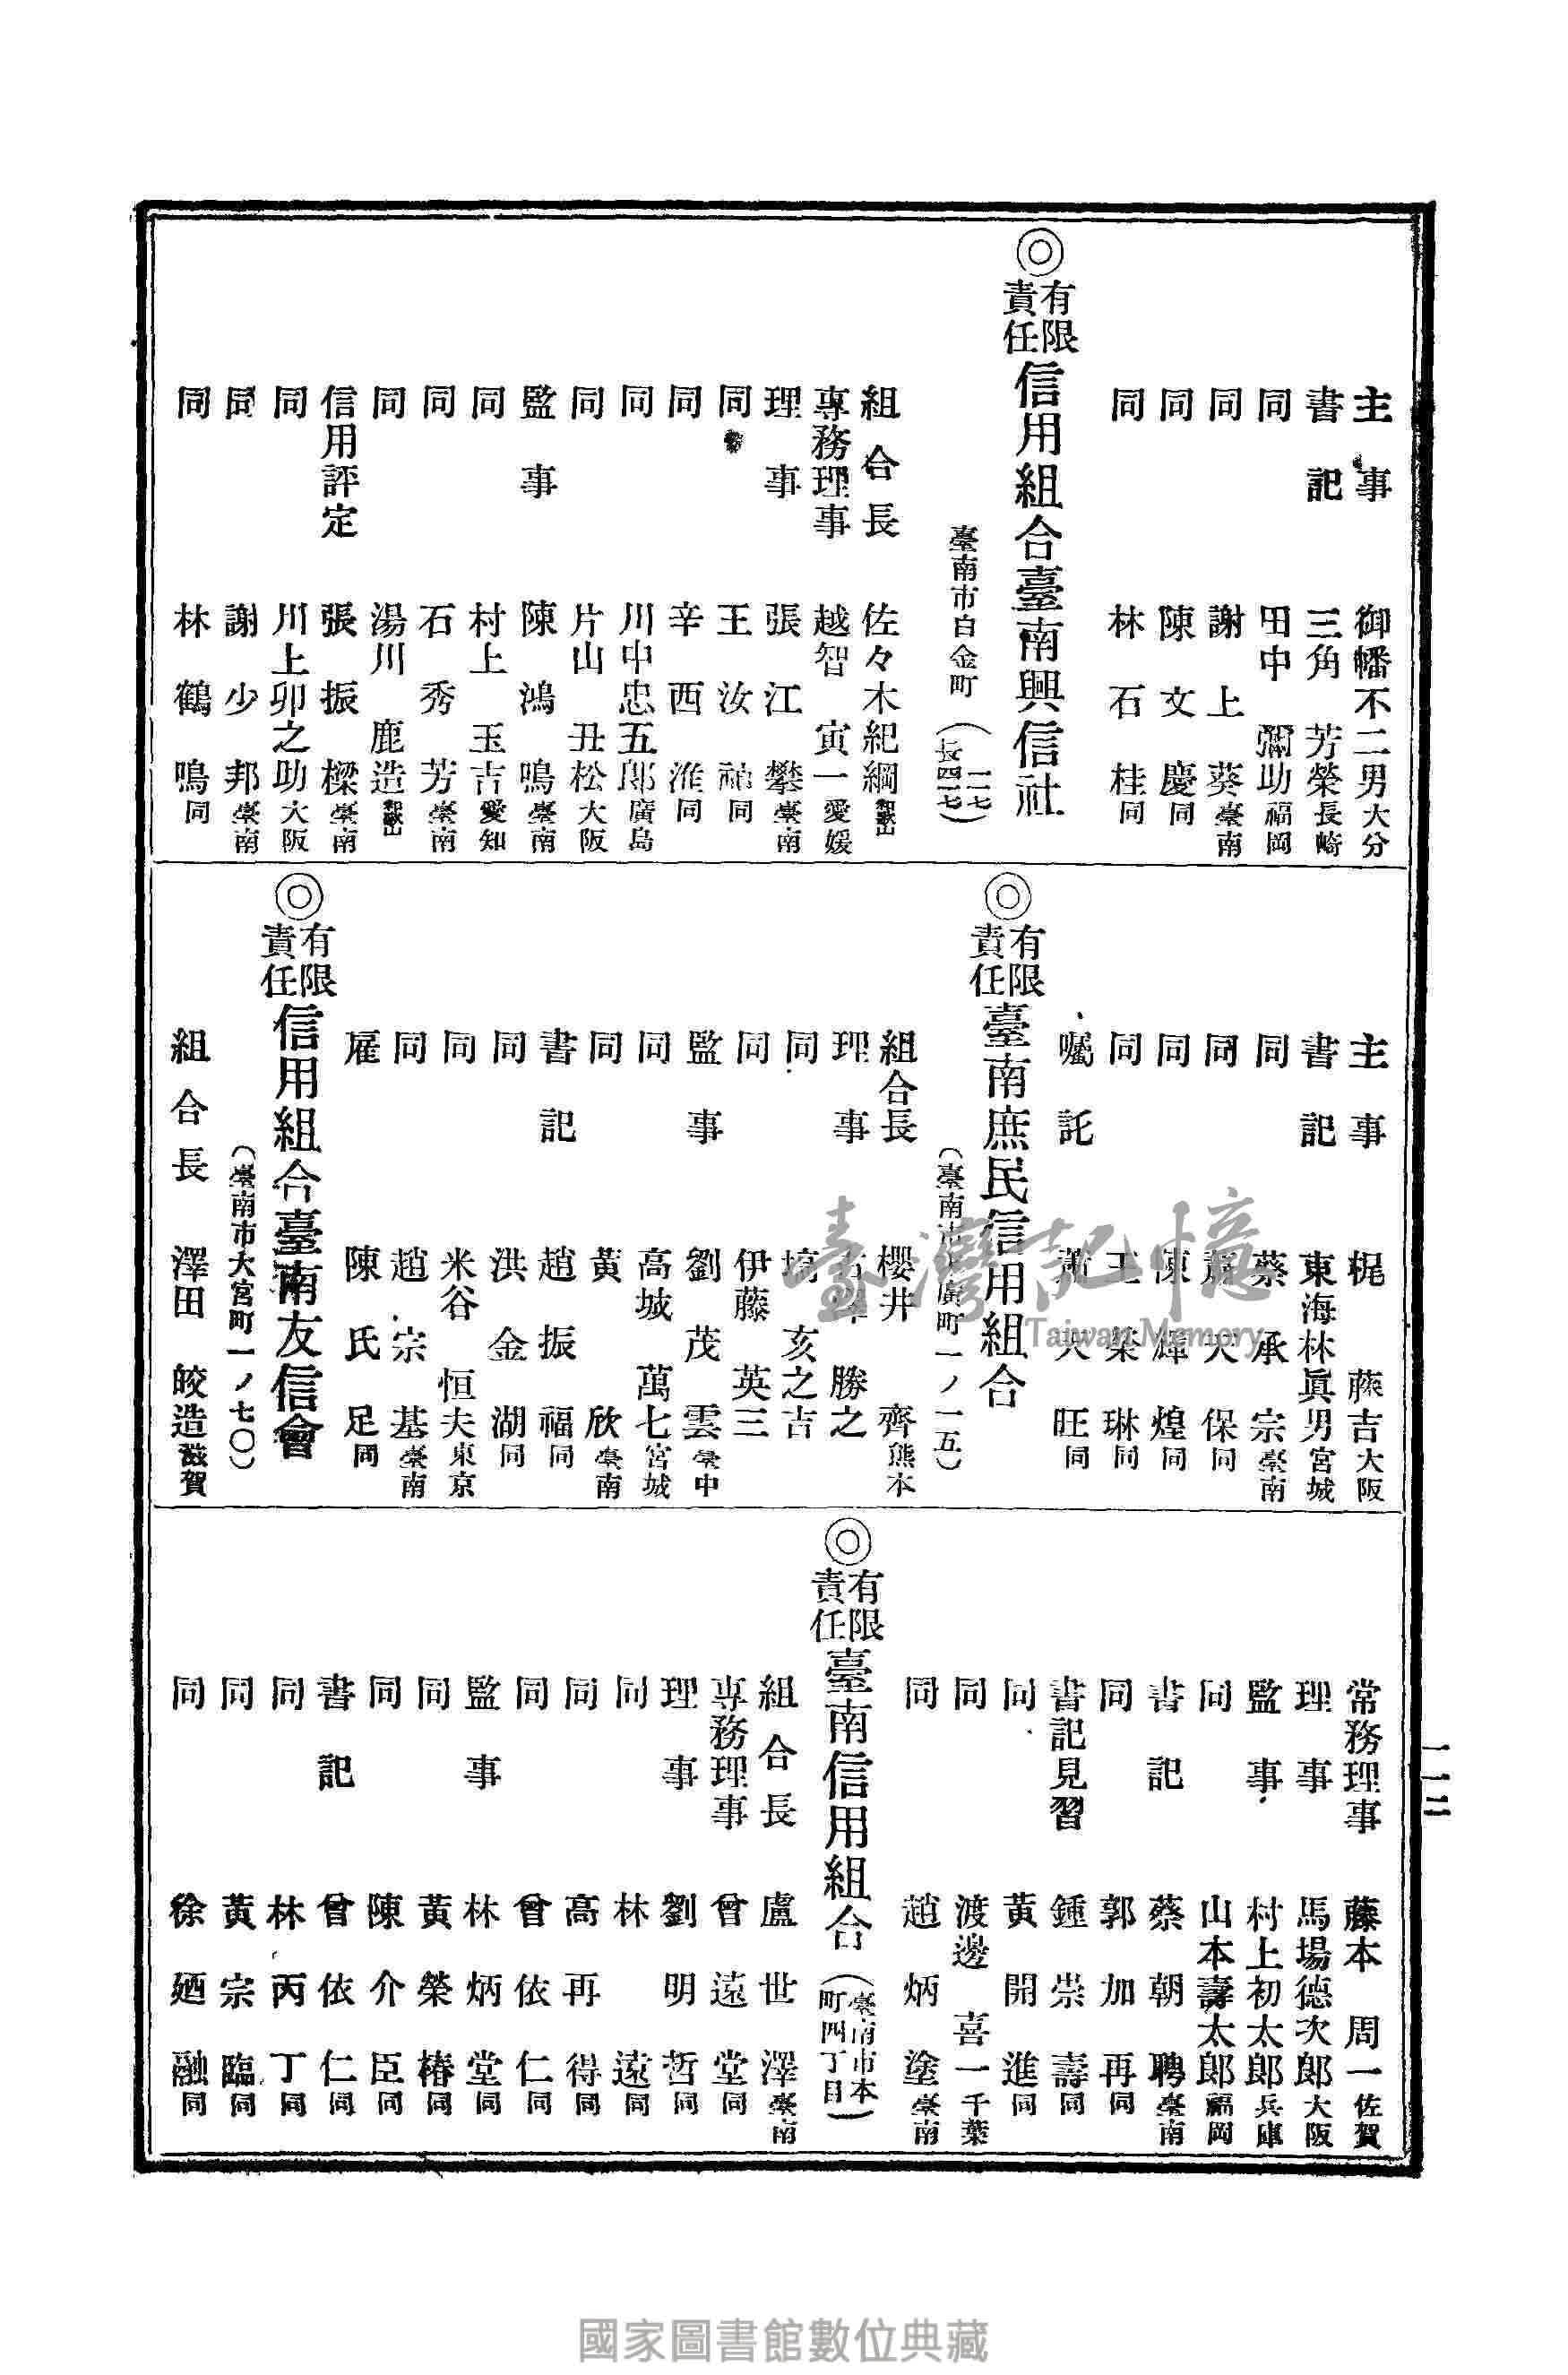 主事 御幡不二男 大分
書記 三角芳榮 長崎
同 田中彌助 福岡
同 謝上葵 臺南
同 陳文慶 同
同 林石桂 同
◎有限責任信用組合臺南興信社
臺南市白金町
(一二七)
(長四一七)
組合長 佐々木紀綱 和歌山
專務理事 越智寅一 愛媛
理事 張江攀 臺南
同 王汝 同
同 辛西淮 同
同 川中忠五郎 廣島
同 片山丑松 大阪
監事 陳鴻鳴 臺南
同 村上玉吉 愛知
同 石秀芳 臺南
同 湯川鹿造 和歌山
信用評定 張振樑 臺南
同 川上卯之助 大阪
同 謝少邦 臺南
同 林鶴鳴 同
主事 梶藤吉 大阪
書記 東海林眞男 宮城
同 蔡承宗 臺南
同 蕭天保 同
同 陳輝煌 同
同 王榮琳 同
囑託 蕭天旺 同
◎有限責任臺南庶民信用組合
(臺南市末廣町一ノ一五)
組合長 櫻井齊 熊本
理事 勝之
同 塙亥之吉
同 伊藤英三
監事 劉茂雲 臺中
同 高城萬七 宮城
同 黃欣 臺南
書記 趙振福 同
同 洪金湖 同
同 米谷恒夫 東京
同 趙宗基 臺南
雇 陳氏足 同
◎有限責任信用組合臺南友信會
(臺南市大宮町一ノ七〇)
組合長 澤田皎造 滋賀
常務理事 藤本周一 佐賀
理事 馬場德次郎 大阪
監事 村上初太郎 兵庫
同 山本壽太郎 福岡
書記 蔡朝聘 臺南
同 郭加再 同
書記見習 鍾崇壽 同
同 黃開進 同
同 渡邊喜一 千葉
同 趙炳塗 臺南
◎有限責任臺南信用組合(臺南市本町四丁目)
組合長 盧世澤 臺南
專務理事 曾遠堂 同
理事 劉明哲 同
同 林遠 同
同 高再得 同
同 曾依仁 同
監事 林炳堂 同
同 黃榮椿 同
同 陳介臣 同
書記 曾依仁 同
同 林丙丁 同
同 黃宗臨 同
同 徐廼融 同
一一二
臺灣記憶
Taiwan Memory
國家圖書館數位典藏